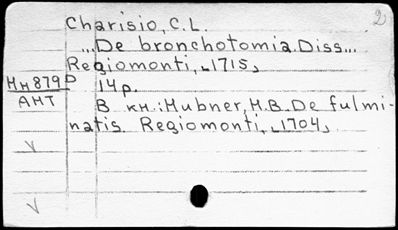 Charisio, C. L. 2
...De bronchotomia. Diss...
Regiomonti, 1715,
Mн879D 14p.
AHT
В кн.: Hubner, M. B. De fulmi-
natis. Regiomonti, 1704,